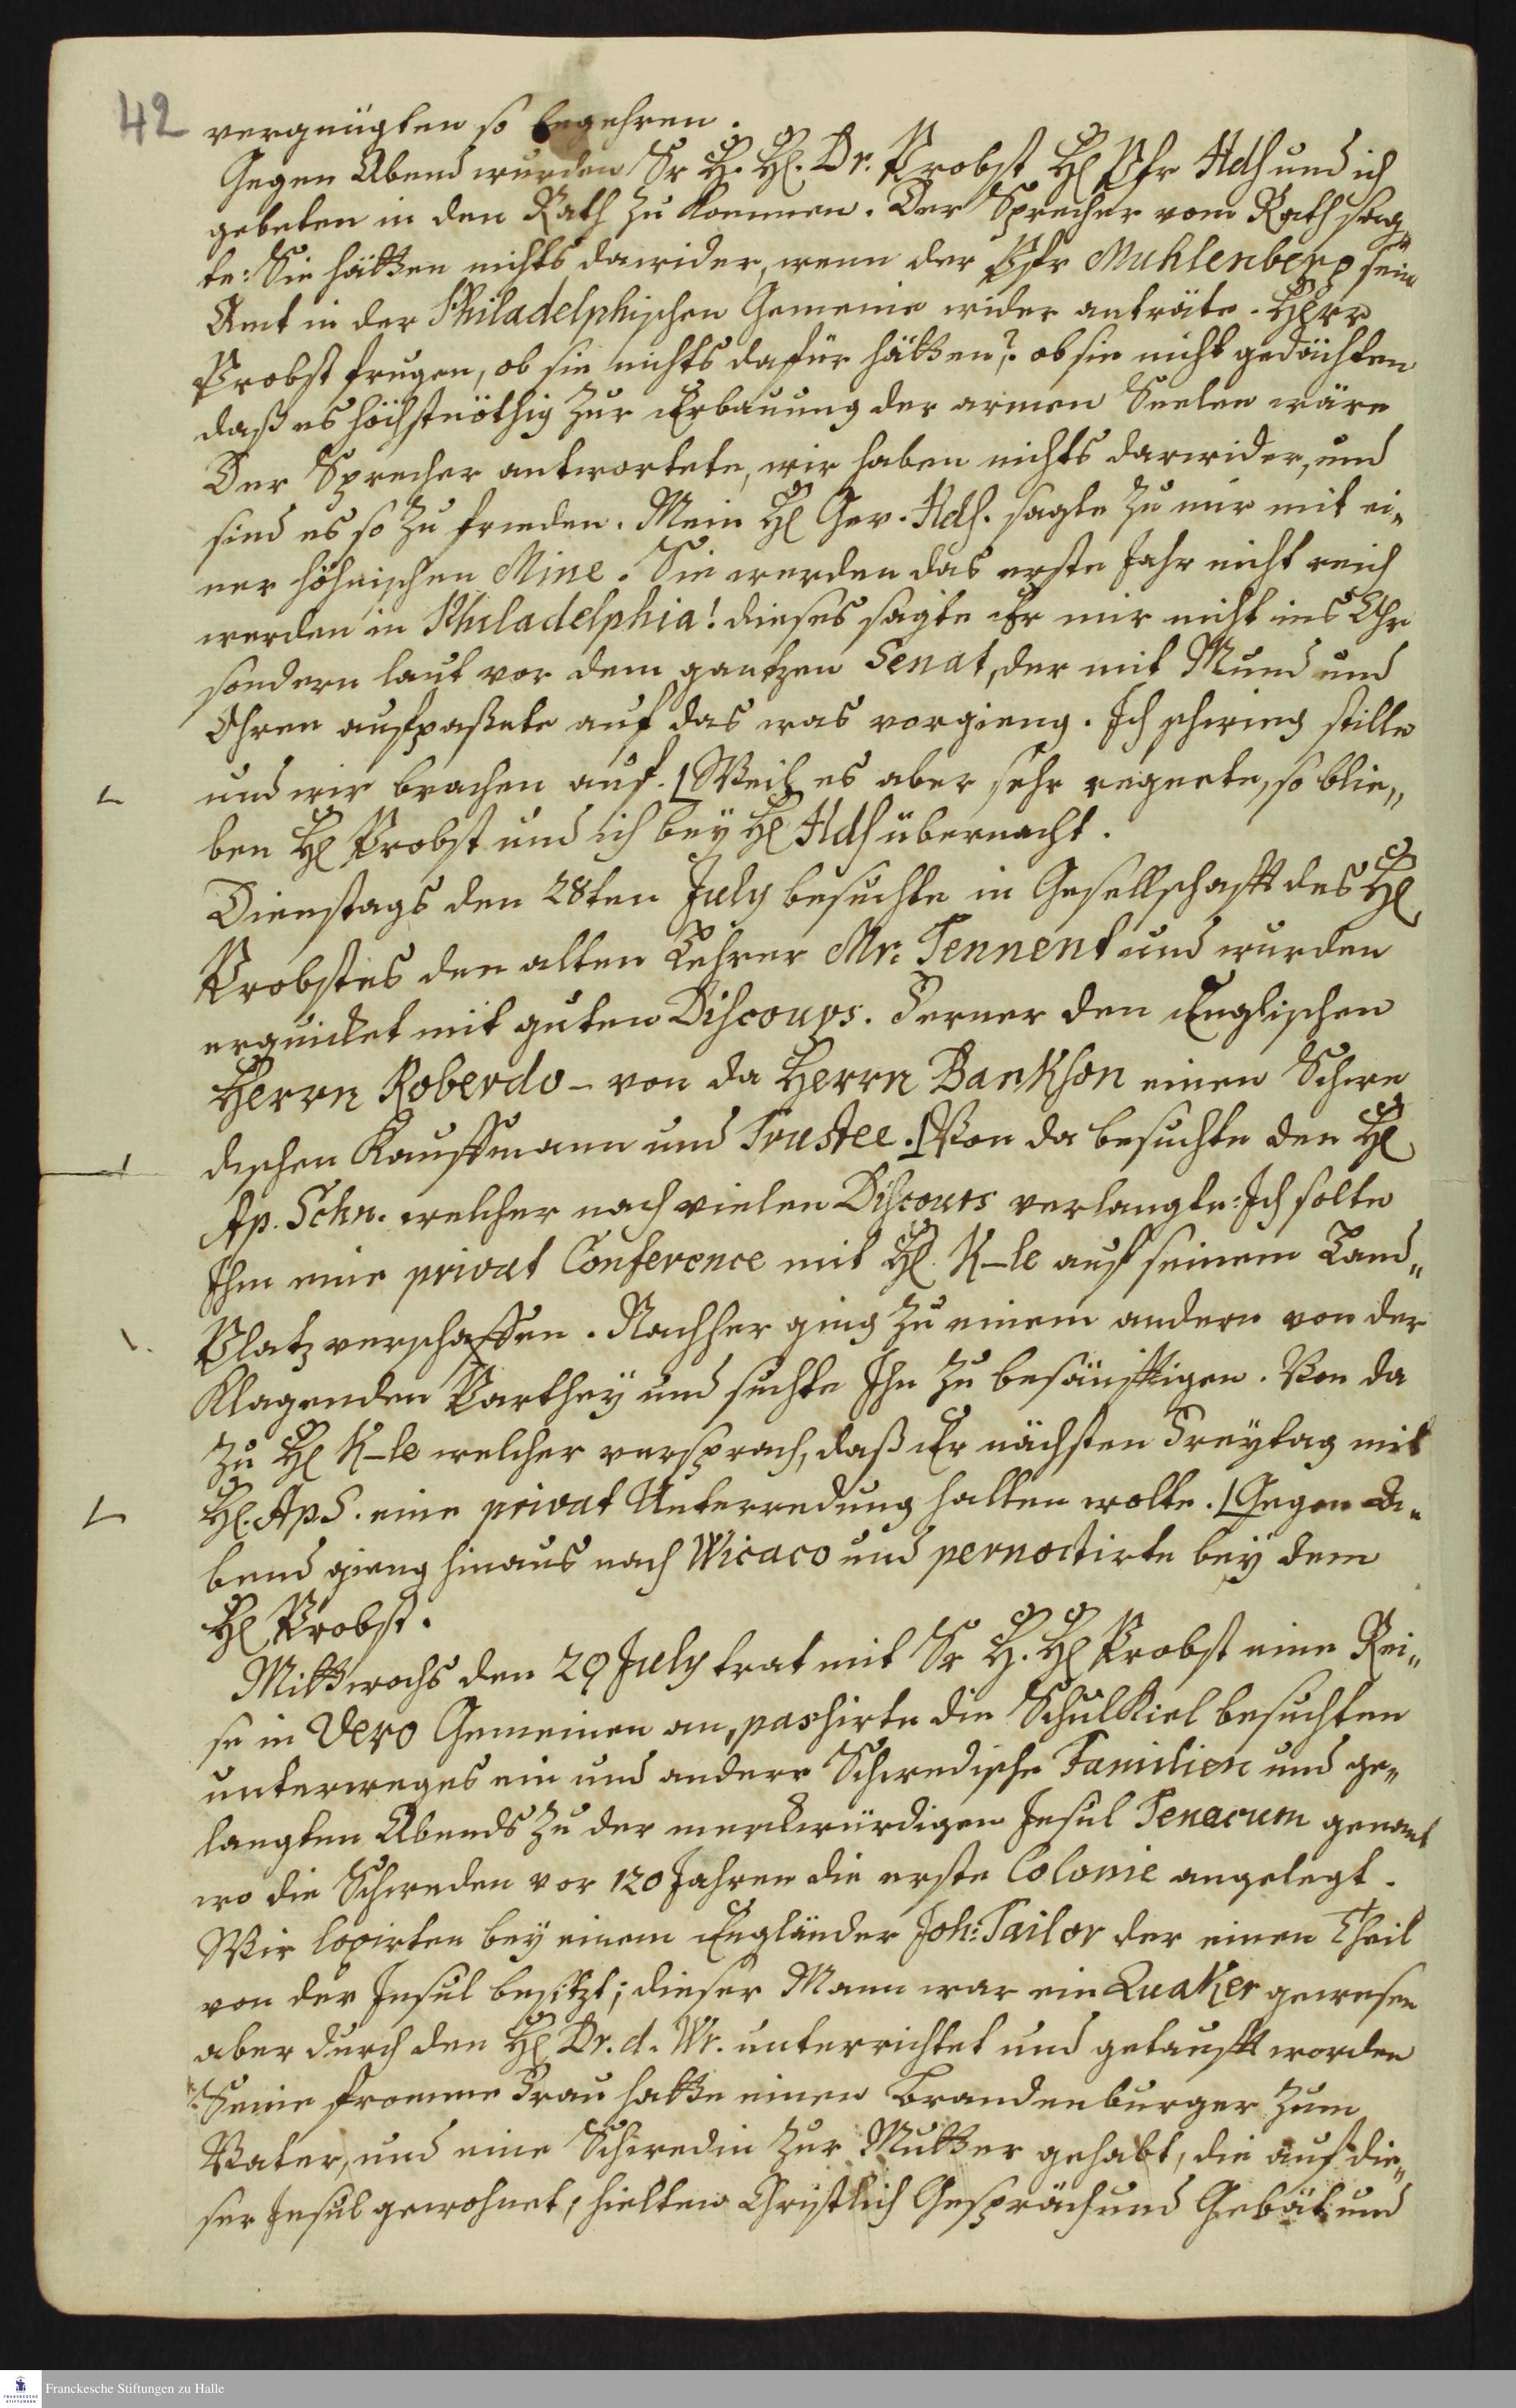 42
vergnügten so begehren.
Gegen Abend wurden Sr H. H. Dr. Probst H Pfr Hdsch und ich
gebeten in den Rath zu kommen. Der Sprecher vom Rath sag„
te: Sie hätten nichts dawider, wenn der Pfr Muhlenberg sein
Amt in der Philadelphischen Gemeine wider anträte. Herr
Probst frugen, ob sie nichts dafür hätten? ob sie nicht gedächten
daß es höchstnöthig zur Erbauung der armen Seelen wäre
Der Sprecher antwortete, wir haben nichts darwider, und
sind es so zu frieden. Mein H Gev. Hdsch. sagte zu mir mit ei„
ner höhnischen Mine. Sie werden das erste Jahr nicht reich
werden in Philadelphia! dieses sagte Er mir nicht ins Ohr
sondern laut vor dem gantzen Senat, der mit Mund und
Ohren aufpaßete auf das was vorgieng. Ich schwieg stille
und wir brachen auf. Weil es aber sehr regnete, so blie„
ben H Probst und ich bey H Hdsch übernacht.
Dienstags den 28ten July besuchte in Gesellschafft des H
Probstes den alten Lehrer Mr. Tennent und wurden
erquicket mit guten Discours. Ferner den Englischen
Herrn Roberdo – von da Herrn Bankson einen Schwe
dischen Kauffmann und Trustee. Von da besuchte den H
Ap. Schn. welcher nach vielen Discours verlangte: Ich solte
Ihm eine privat Conference mit H. K–le auf seinem Land„
Platz verschaffen. Nachher ging zu einem andern von der
Klagenden Parthey und suchte Ihn zu besänfftigen. Von da
zu H K–le welcher versprach, daß Er nächsten Freytag mit
H. Ap. S. eine privat Unterredung halten wolte. Gegen A„
bend gieng hinaus nach Wicaco und pernoctirte bey dem
H Probst.
Mittwochs den 29 July trat mit Sr H. H Probst eine Rei„
se in Dero Gemeinen an, passirte die Schulkiel besuchten
unterweges ein und andere Schwedische Familien und ge„
langten Abends zu der merckwürdigen Insul Tenacum genant
wo die Schweden vor 120 Jahren die erste Colonie angelegt.
Wir logirten bey einem Engländer Joh: Tailor der einen Theil
von der Insul besitzt; dieser Mann war ein Quaker gewesen
aber durch den H Dr. d. Wr. unterrichtet und getaufft worden
Seine fromme Frau hatte einen Brandenburger zum
Vater, und eine Schwedin zur Mutter gehabt, die auf die„
ser Insul gewohnet, hielten Christlich Gespräch und Gebät und
Franckesche Stiftungen zu Halle